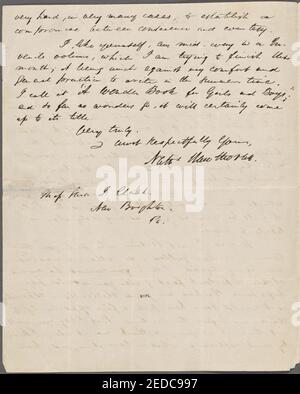 very hard, in very many cases, to establish a
compromise between conscience and courtesy.
I, like yourself, am mid-way in a Ju-
venile volume, which I am trying to finish this
month; it being much against my comfort and
usual practice to write in the summer time.
I call it "A Wonder Book for Girls and Boys;"
and so far as wonders go it will certainly come
up to its title.
Very truly,
& most Respectfully Yours,
Nath Hawthorne.
New Brighton,
Pa.
alamy
Image ID: 2EDC997
www.alamy.com